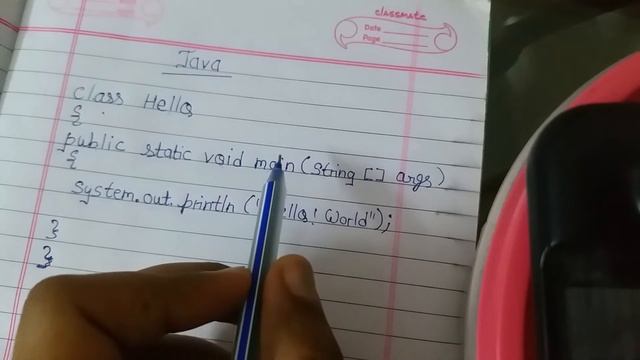 classmate
Date
Page
Java
class Hello
{
public static void main (string [] args)
{
system.out.println ("Hello! World");
}
}